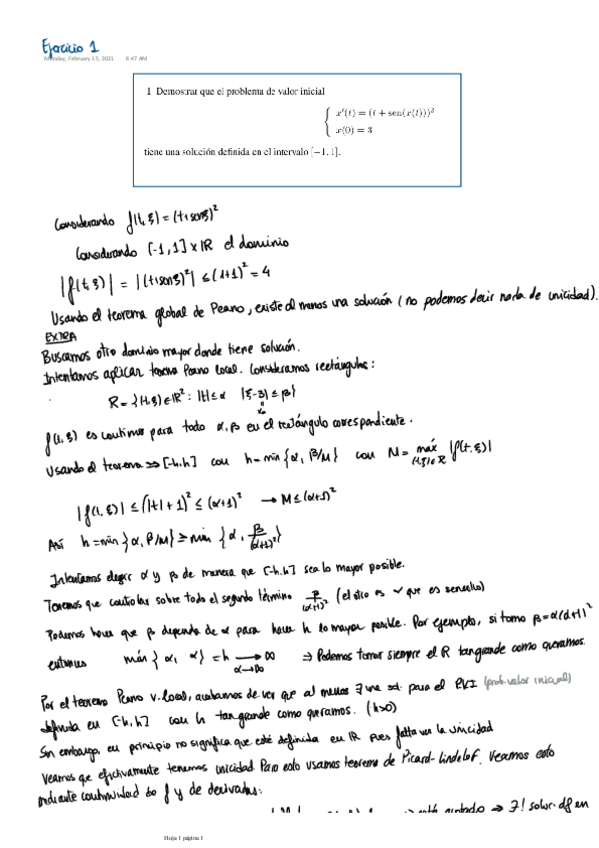 Ejercicio 1
Monday, February 15, 2021 8:47 AM
1 Demostrar que el problema de valor inicial
{ x'(t) = (t + sen(x(t)))²
x(0) = 3
tiene una solución definida en el intervalo [−1, 1].
Considerando f(t,ξ) = (t+senξ)²
Considerando [-1,1] x IR el dominio
|f(t,ξ)| = |(t+senξ)²| ≤ (1+1)² = 4
Usando el teorema global de Peano, existe al menos una solución (no podemos decir nada de unicidad).
EXTRA
Buscamos otro dominio mayor donde tiene solución.
Intentamos aplicar teorema Peano local. Consideramos rectángulos:
R = {(t,ξ)∈IR² : |t| ≤ α |ξ-3| ≤ β}
x₀
f(t,ξ) es continua para todo α, β en el rectángulo correspondiente.
Usando el teorema ⇒ [-h,h] con h = min{α, β/M} con M = máx |f(t,ξ)|
(t,ξ)∈R
|f(t,ξ)| ≤ (|t|+1)² ≤ (α+1)² → M ≤ (α+1)²
Así h = min{α, β/M} ≥ min {α, β/(α+1)²}
Intentamos elegir α y β de manera que [-h,h] sea lo mayor posible.
Tenemos que controlar sobre todo el segundo término β/(α+1)² (el otro es α que es sencillo)
Podemos hacer que β dependa de α para hacer h lo mayor posible. Por ejemplo, si tomo β = α(α+1)²
entonces min{α, α} = h → ∞ ⇒ Podemos tomar siempre el R tan grande como queramos.
α→∞
Por el teorema Peano v. local, acabamos de ver que al menos ∃ una sol. para el PVI (prob. valor inicial)
definida en [-h,h] con h tan grande como queramos. (h>0)
Sin embargo, en principio no significa que esté definida en IR pues falta ver la unicidad
Veamos que efectivamente tenemos unicidad. Para esto usamos teorema de Picard-Lindelöf. Veamos esto
mediante continuidad de f y de derivadas:
está acotado ⇒ ∃! soluc. df en
Hoja 1 página 1